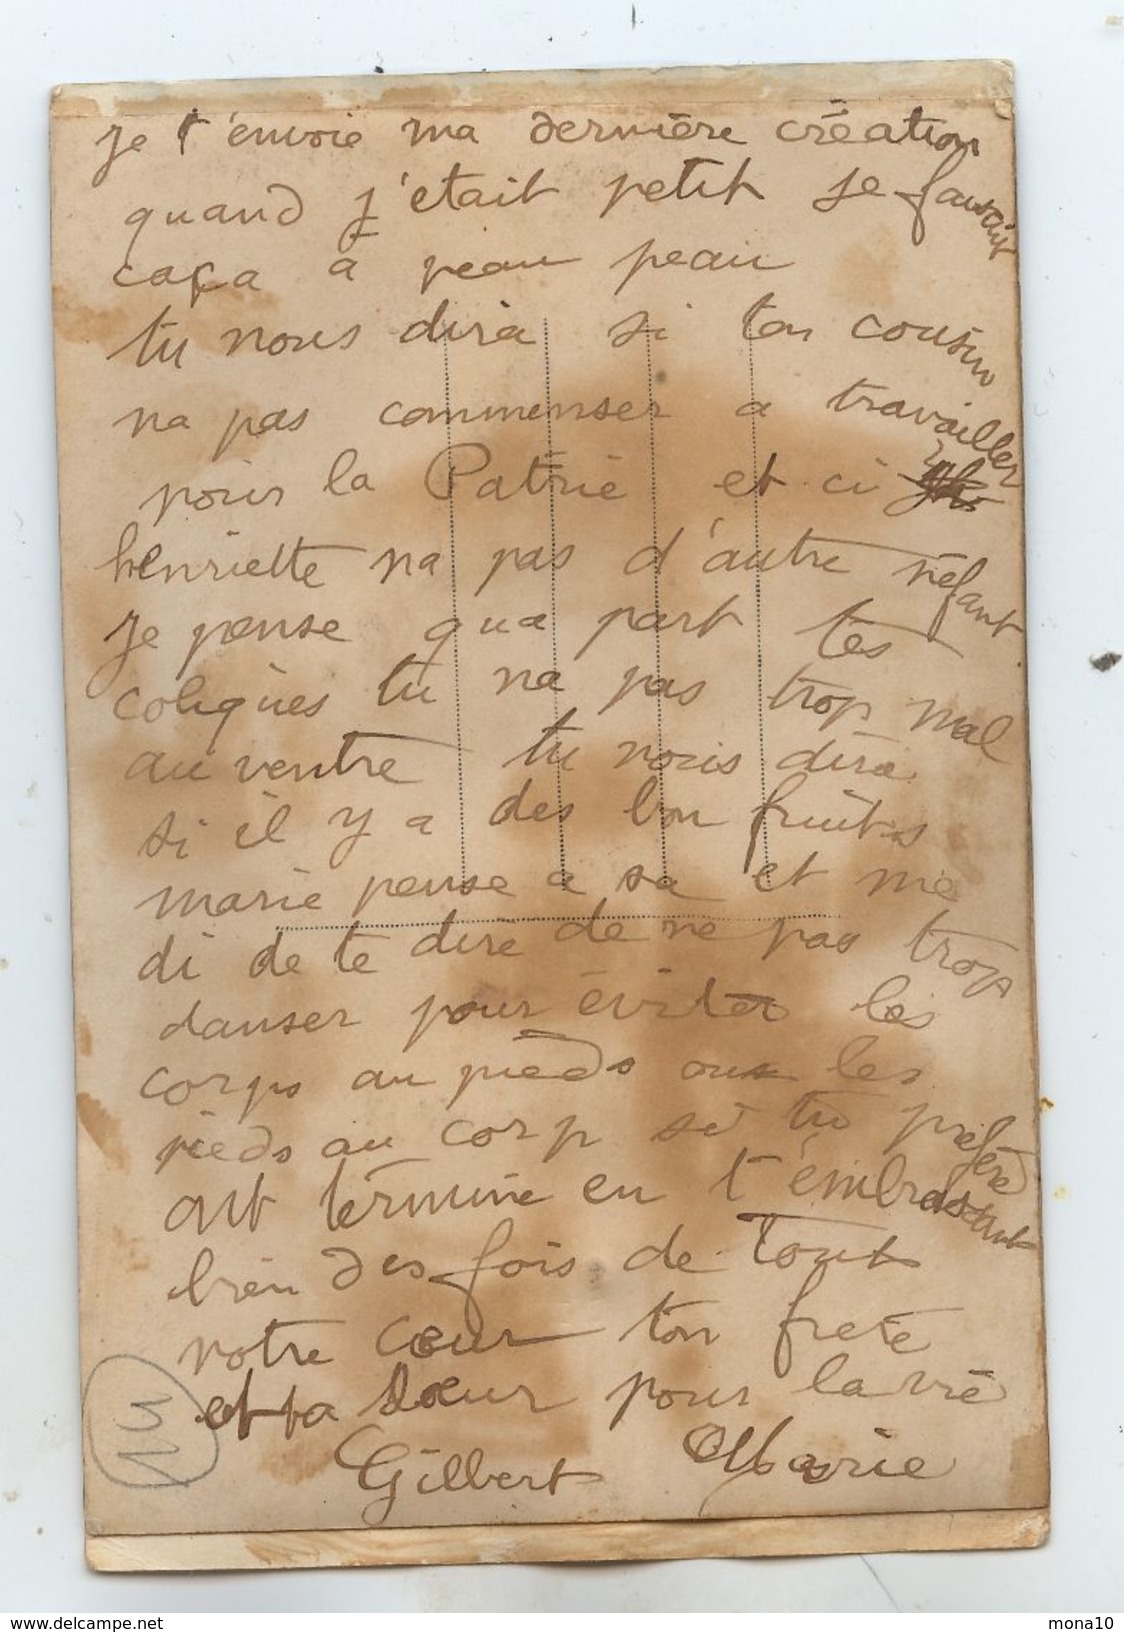 je t'envoie ma dernière création
quand j'etait petit je faisait
caca a peau peau
tu nous dira si ton cousin
na pas commenser a travailler
pour la Patrie et ci
henriette na pas d'autre nefant
je pense qua part tes
coliques tu na pas trop mal
au ventre tu nous dira
si il y a des bon fruits
marie pense a sa et me
di de te dire de ne pas trop
danser pour éviter les
corps au pieds oux les
pieds au corp si tu préfère
ont termine en t'embrassant
bien des fois de tout
notre cœur ton frere
et ta sœur pour la vie
Gilbert Marie
14
delcampe.net
mona10